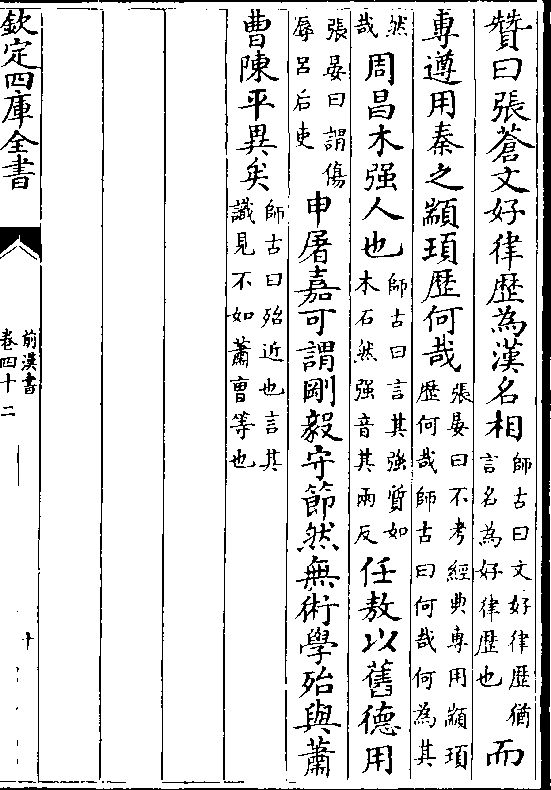 贊曰張蒼文好律歴為漢名相師古曰文好律歴猶言名為好律歴也而
專遵用秦之顓頊歴何哉張晏曰不考經典專用顓頊歴何哉師古曰何哉何為其
然哉周昌木强人也師古曰言其强質如木石然强音其兩反任敖以舊徳用
張晏曰謂傷辱吕后吏申屠嘉可謂剛毅守節然無術學殆與蕭
曹陳平異矣師古曰殆近也言其識見不如蕭曹等也
欽定四庫全書
前漢書
卷四十二
十